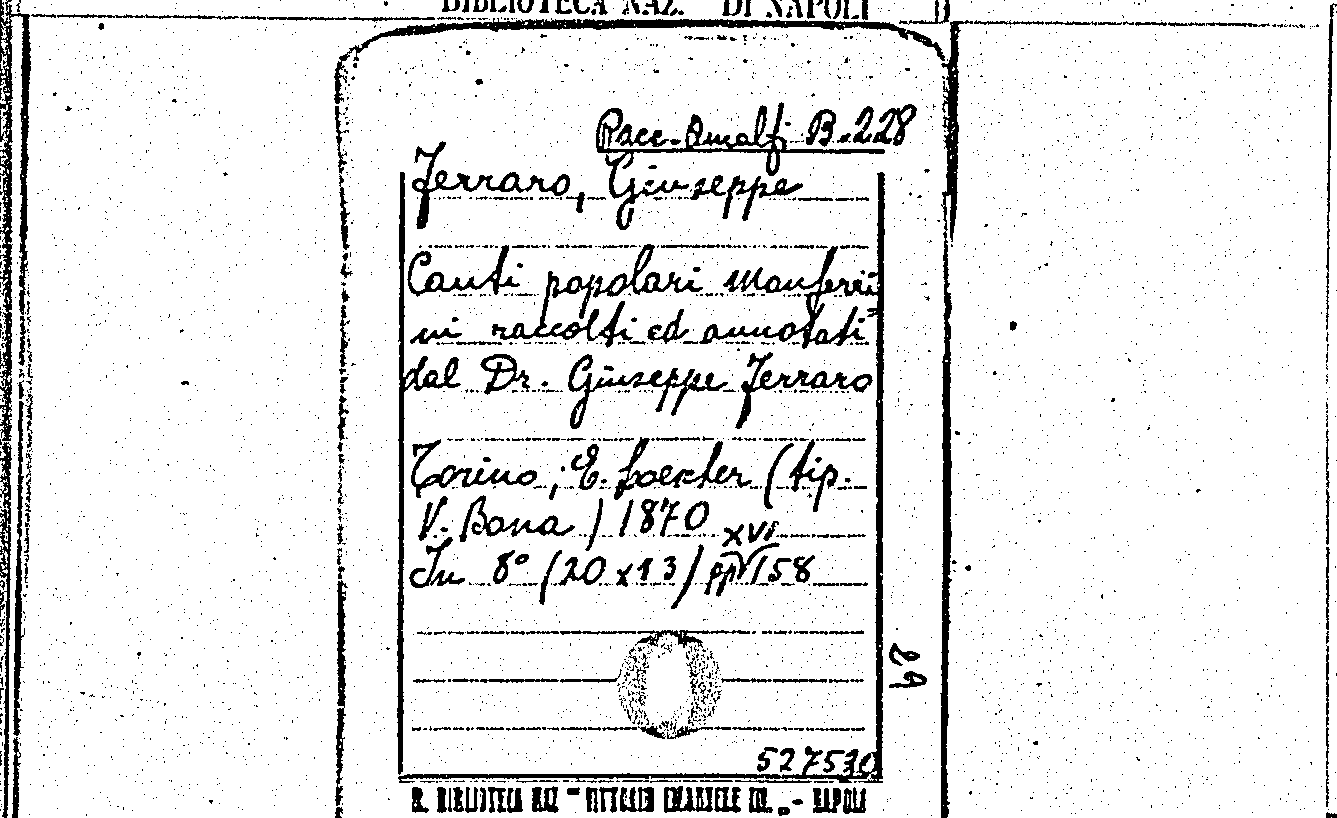 BIBLIOTECA NAZ. DI NAPOLI
Racc. Amalfi B. 228
Ferraro, Giuseppe
Canti popolari monferri=
ni raccolti ed annotati
dal Dr. Giuseppe Ferraro
Torino, E. Loescher (tip.
V. Bona) 1870
XVI
In 8° (20x13) pp 158
29
527530
R. BIBLIOTECA NAZ "VITTORIO EMANUELE III." - NAPOLI